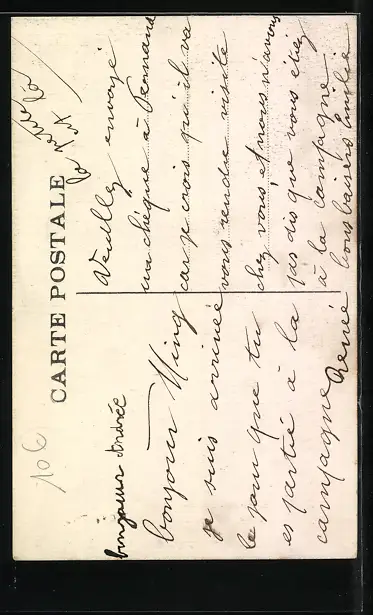 CARTE POSTALE
bonjour Andrée
bonjour Ninq
je suis arrivée
le jour que tu
es partie à la
campagne
Renée
Veuillez envoyé
un chèque à Fernand
car je crois qu'il va
vous rendre visite
chez vous et nous n'avons
pas dis que vous étiez
à la campagne
bons baisers Emilie
106